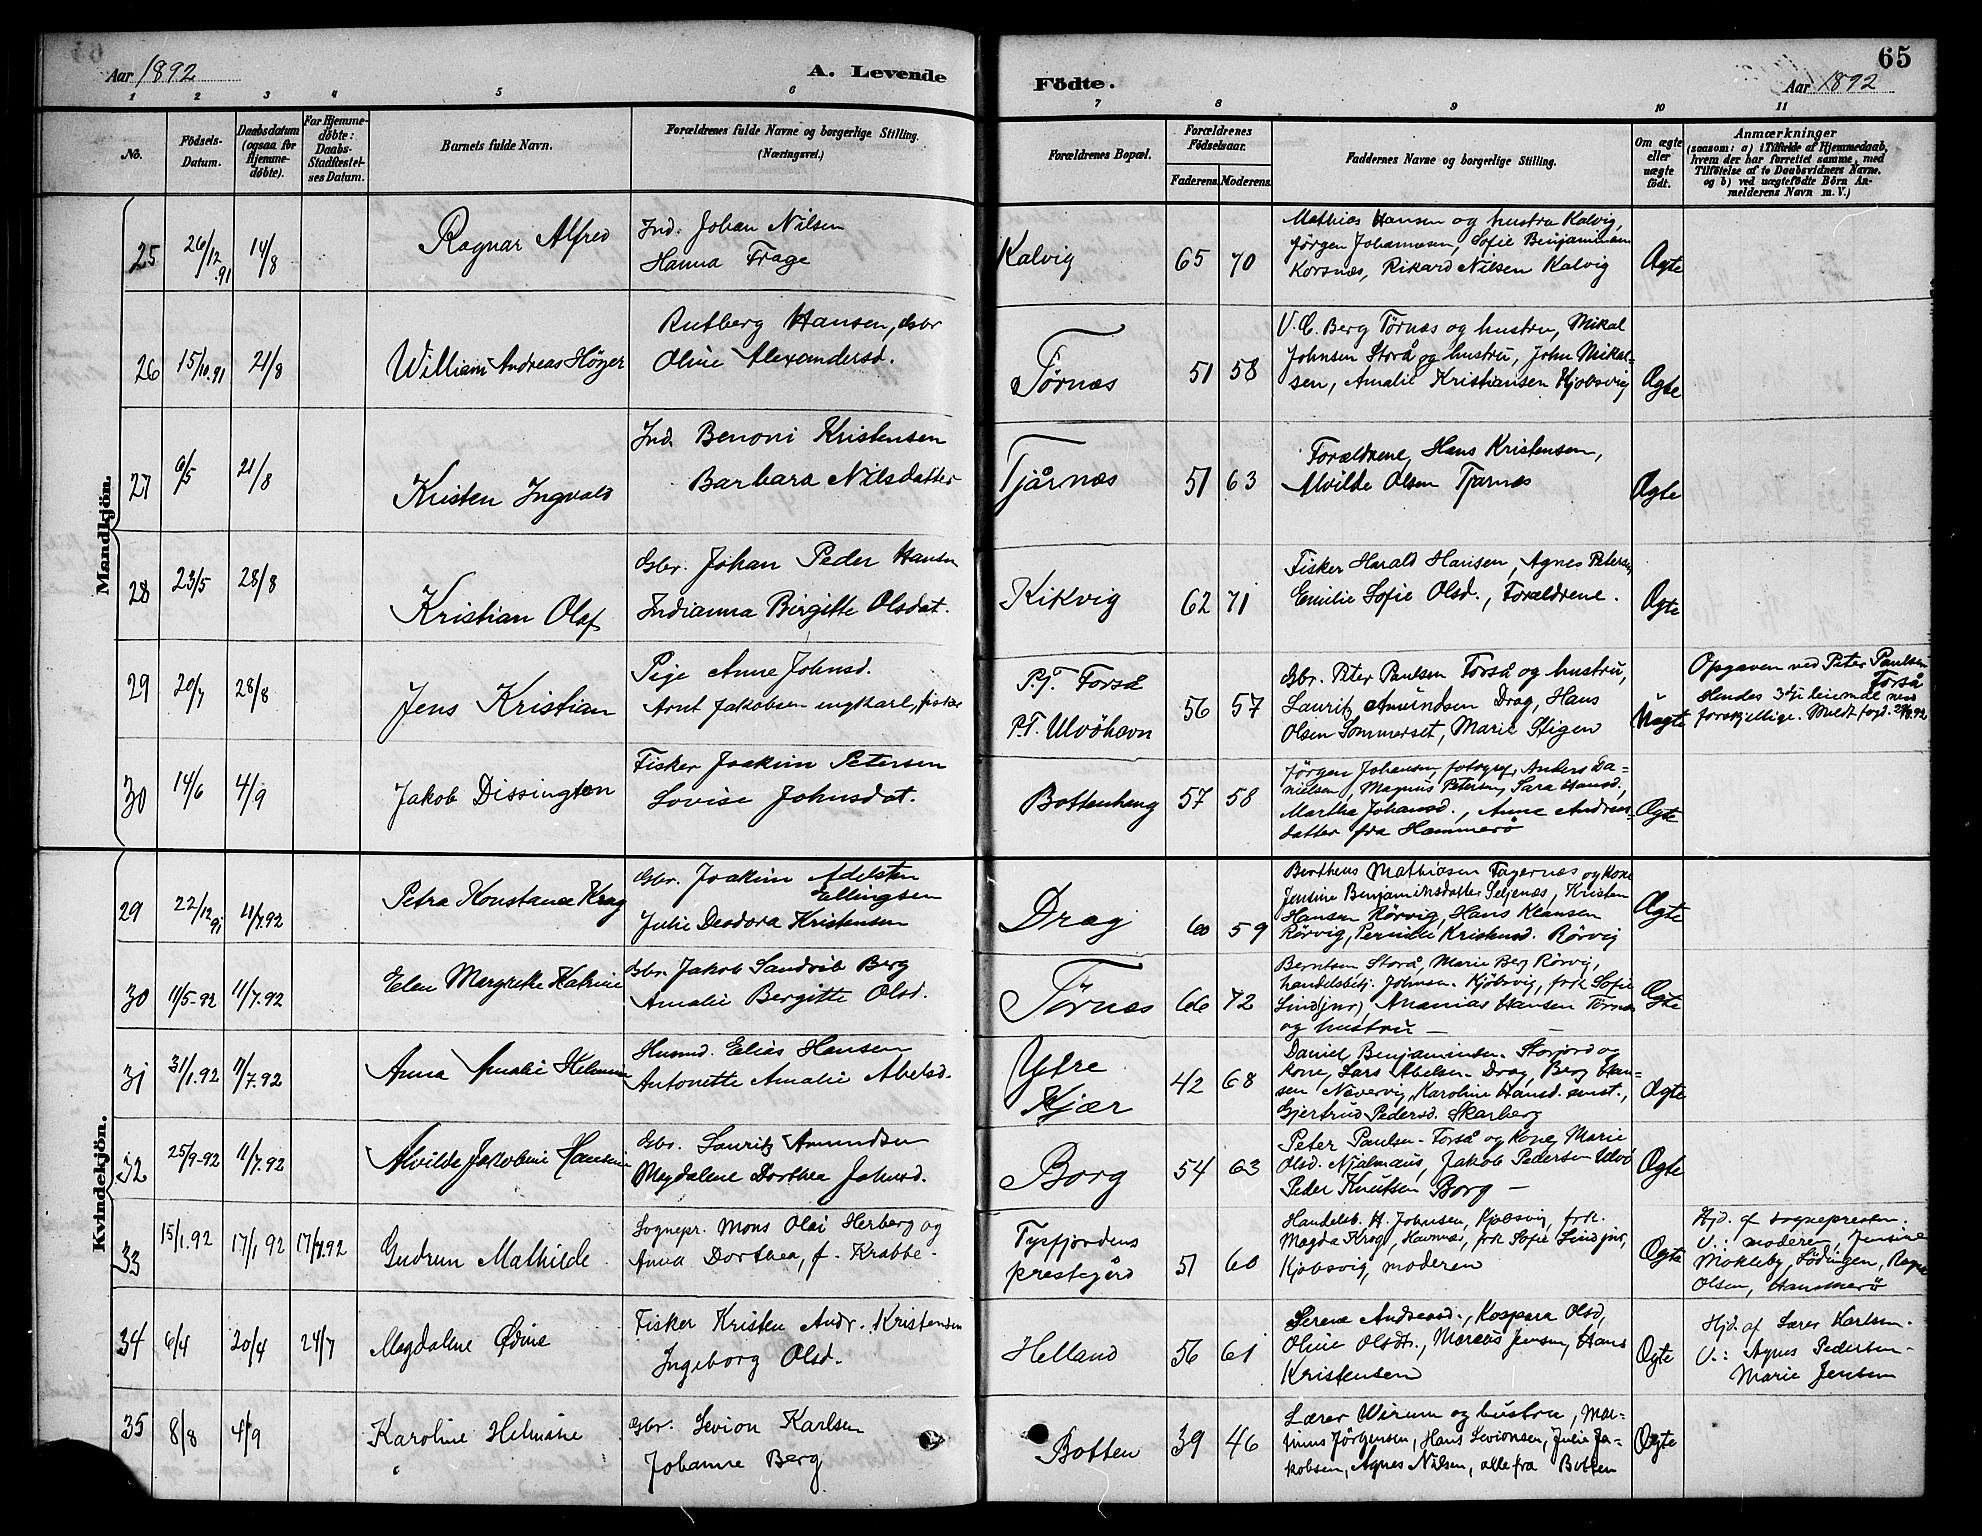 65
Aar 1892
A. Levende
Födte.
Aar 1892
1 2 3 4 5 6
7 8 9 10 11
No.
Födsels-
Datum.
Daabsdatum
(ogsaa for
Hjemme-
döbte).
For Hjemme-
döbte:
Daabs-
Stadfæstel-
ses Datum.
Barnets fulde Navn.
Forældrenes fulde Navne og borgerlige Stilling.
(Næringsvei.)
Forældrenes Bopæl.
Forældrenes
Födselsaar.
Faderens. Moderens.
Faddernes Navne og borgerlige Stilling.
Om ægte
eller
uægte
födt.
Anmærkninger
(saasom: a) i Tilfælde af Hjemmedaab,
hvem der har forrettet samme, med
Tilföielse af to Daabsvidners Navne.
og b) ved uægtefödte Börn An-
melderens Navn m. V.)
Mandkjön.
25 26/12.91 14/8 Ragnar Alfred
Ind. Johan Nilsen
Hanna Frage
Kalvig 65 70
Mathias Hansen og hustru Kalvig,
Jørgen Johannesen, Sofie Benjaminsen
Korsnæs, Rikard Nilsen Kalvig
Ægte
26 15/10.91 21/8 William Andreas Höyer
Rutberg Hansen, Gbr
Oline Alexandersd.
Tørnæs 51 58
V. C. Berg Tørnæs og hustru, Mikal
Johnsen Storå og hustru, John Mikal-
sen, Amalie Kristiansen Kjöbsvig
Ægte
27 6/5 21/8 Kristen Ingvald
Ind. Benoni Kristensen
Barbara Nilsdatter
Tjårnæs 51 63
Forældrene, Hans Kristensen,
Alvilde Olsen Tjårnæs
Ægte
28 23/5 28/8 Kristian Olaf
Gbr. Johan Peder Hansen
Indianna Birgitte Olsdat.
Kikvig 62 71
Fisker Harald Hansen, Agnes Petersen
Emilie Sofie Olsd., Forældrene.
Ægte
29 20/7 28/8 Jens Kristian
Pige Anne Johnsd.
Arnt Jakobsen ungkarl, fisker
P.T. Forså
P.T. Ulvöhavn
56 57
Gbr. Peter Paulsen Forså og hustru,
Lauritz Amundsen Drag, Hans
Olsen Sommerset, Marie Stigen
Uægte
Opgaven ved Peter Paulsen
Forså
Hendes 3die leiermål med
forskjellige. Meldt fogd.
30 14/6 4/9 Jakob Dissington
Fisker Joakim Petersen
Lovise Johnsdat.
Bottenheng 57 58
Jørgen Johansen, fotograf, Anders Da-
nielsen, Magnus Petersen, Sara Hansd.,
Martha Johansd., Anne Andreas-
datter fra Hammerö
Ægte
Kvindekjön.
29 22/12 91 11/7.92 Petra Konstance Krag
Gbr. Joakim Adelsten
Ellingsen
Julie Deodora Kristensen
Drag 60 59
Bertheus Mathiasen Fagernæs og kone
Jensine Benjaminsdatter Seljenæs, Kristen
Hansen Rörvig, Hans Klausen
Rörvig, Pernille Kristensd. Rörvig
Ægte
30 11/5-92 11/7.92 Elen Margrethe Katrine
Gbr. Jakob Sandvib Berg
Amalie Bergitte Olsd.
Tørnæs 66 72
Berntsen Storå, Marie Berg Rörvig,
handelsbetj. Johnsen Kjöbsvig, frk Sofie
Lind (jnr), Ananias Hansen Tørnæs
og hustru —
Ægte
31 31/1.92 11/7.92 Anna Amalie Helmine
Husmd. Elias Hansen
Antonette Amalie Abelsd.
Ytre
Kjær
42 68
Daniel Benjaminsen Storjord og
kone, Lars Abelsen Drag, Berg Han-
sen Nævervig, Karoline Hansd. smst.,
Gjertrud Pedersd. Skarberg
Ægte
32 25/9-92 11/7.92 Alvilde Jakobine Hansine
Gbr. Lauritz Amundsen
Magdalene Dorthea Johnsd.
Borg 54 63
Peter Paulsen Forså og kone, Marie
Olsd. Njalmaus, Jakob Pedersen Ulvö
Peder Knutsen Borg —
Ægte
33 15/1.92 17/1 92 17/7.92 Gudrun Mathilde
Sognepr. Mons Olai Herberg og
Anna Dorthea, f. Krabbe.
Tysfjordens
prestegård
51 60
Handelsb. H. Johnsen, Kjöbsvig, frk.
Magda Krog, Havnnæs, frk Sofie Lind jnr,
Kjöbsvig, moderen
Ægte
Hjd. af sognepresten.
V.: moderen, Jensine
Mökleby, Lödingen,
Olsen, Hammerö
34 6/4 20/4 24/7 Magdalene Ödine
Fisker Kristen Andr. Kristensen
Ingeborg Olsd.
Helland 56 61
Serene Andreasd., Kaspara Olsd,
Oline Olsdtr., Marcus Jensen, Hans
Kristensen
Ægte
Hjd. af Lærer Karlsen.
V.: Agnes Pedersen
Marie Jensen
35 8/8 4/9 Karoline Helmine
Gbr. Sevion Karlsen
Johanne Berg
Botten 39 46
Lærer Wirum og hustru, Mar-
tinus Jörgensen, Hans Sevionsen, Julie Ja-
kobsen, Agnes Nilsen, alle fra Botten
Ægte